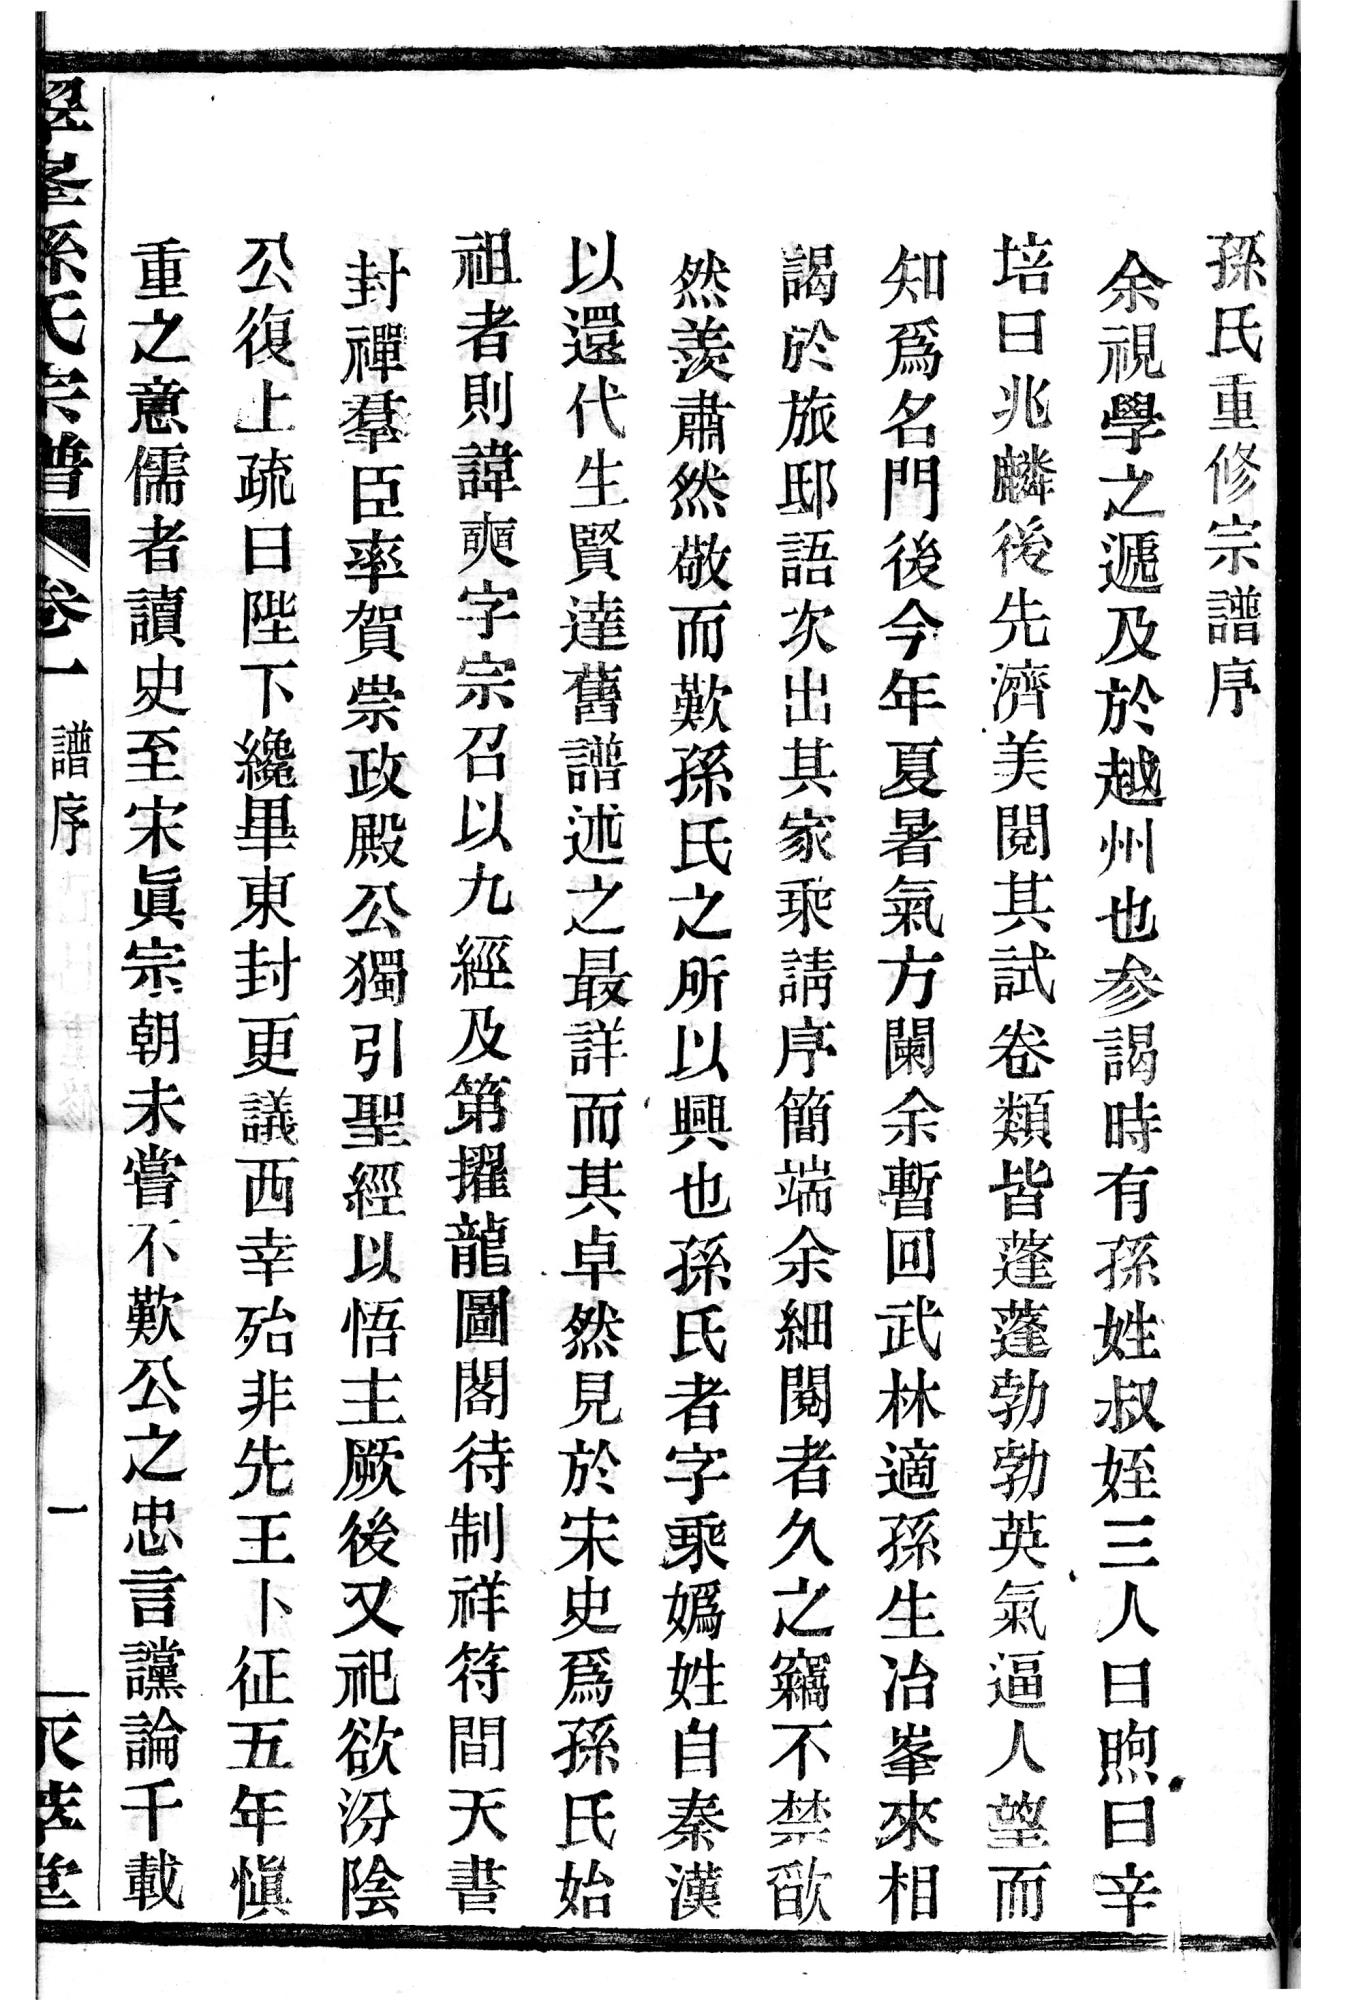 孫氏重修宗譜序
余視學之遞及於越州也參謁時有孫姓叔姪三人曰煦曰辛
培曰兆麟後先濟美閱其試卷類皆蓬蓬勃勃英氣逼人望而
知爲名門後今年夏暑氣方闌余暫回武林適孫生冶峯來相
謁於旅邸語次出其家乘請序簡端余細閱者久之竊不禁歆
然羨肅然敬而歎孫氏之所以興也孫氏者字乘嬀姓自秦漢
以還代生賢達舊譜述之最詳而其卓然見於宋史爲孫氏始
祖者則諱奭字宗召以九經及第擢龍圖閣待制祥符間天書
封禪羣臣率賀崇政殿公獨引聖經以悟主厥後又祀欲汾陰
公復上疏曰陛下纔畢東封更議西幸殆非先王卜征五年愼
重之意儒者讀史至宋眞宗朝未嘗不歎公之忠言讜論千載
翠峯孫氏宗譜 卷一 譜序 一 萃堂